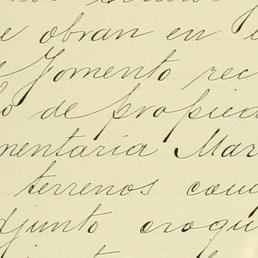 e obran en
Fomento rec
o de propied
mentaria Mar
terrenos com
djunto croqu